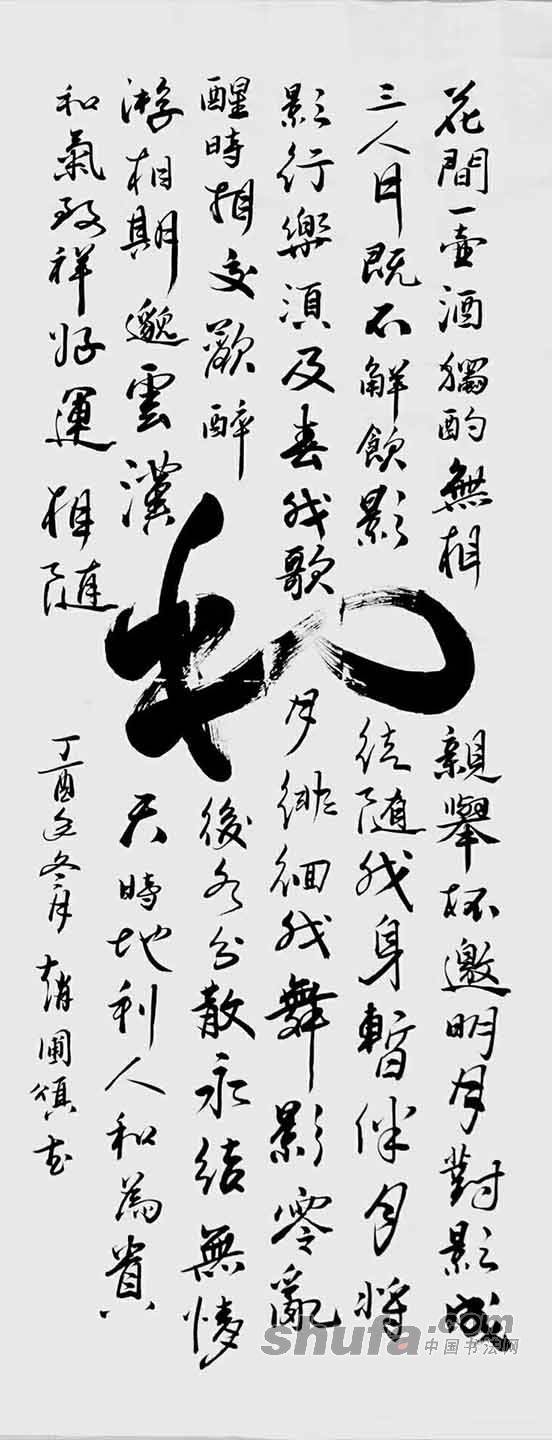 花間一壺酒獨酌無相親舉杯邀明月對影成
三人月既不解飲影徒随我身暫伴月將
影行樂須及春我歌月徘徊我舞影零亂
醒時相交歡醉後各分散永結無情
游相期邈雲漢天時地利人和為貴
和氣致祥好運相随
和
丁酉冬月趙
shufa.com
中国书法网